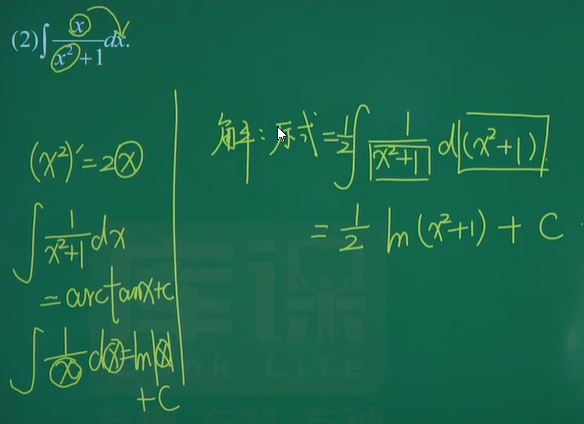 (2)∫ x/(x²+1) dx.
(x²)' = 2x
∫ 1/(x²+1) dx
= arctanx+c
∫ 1/x dx = ln|x|
+C
解：原式 = 1/2 ∫ 1/(x²+1) d(x²+1)
= 1/2 ln(x²+1) + C
库课
ook Life